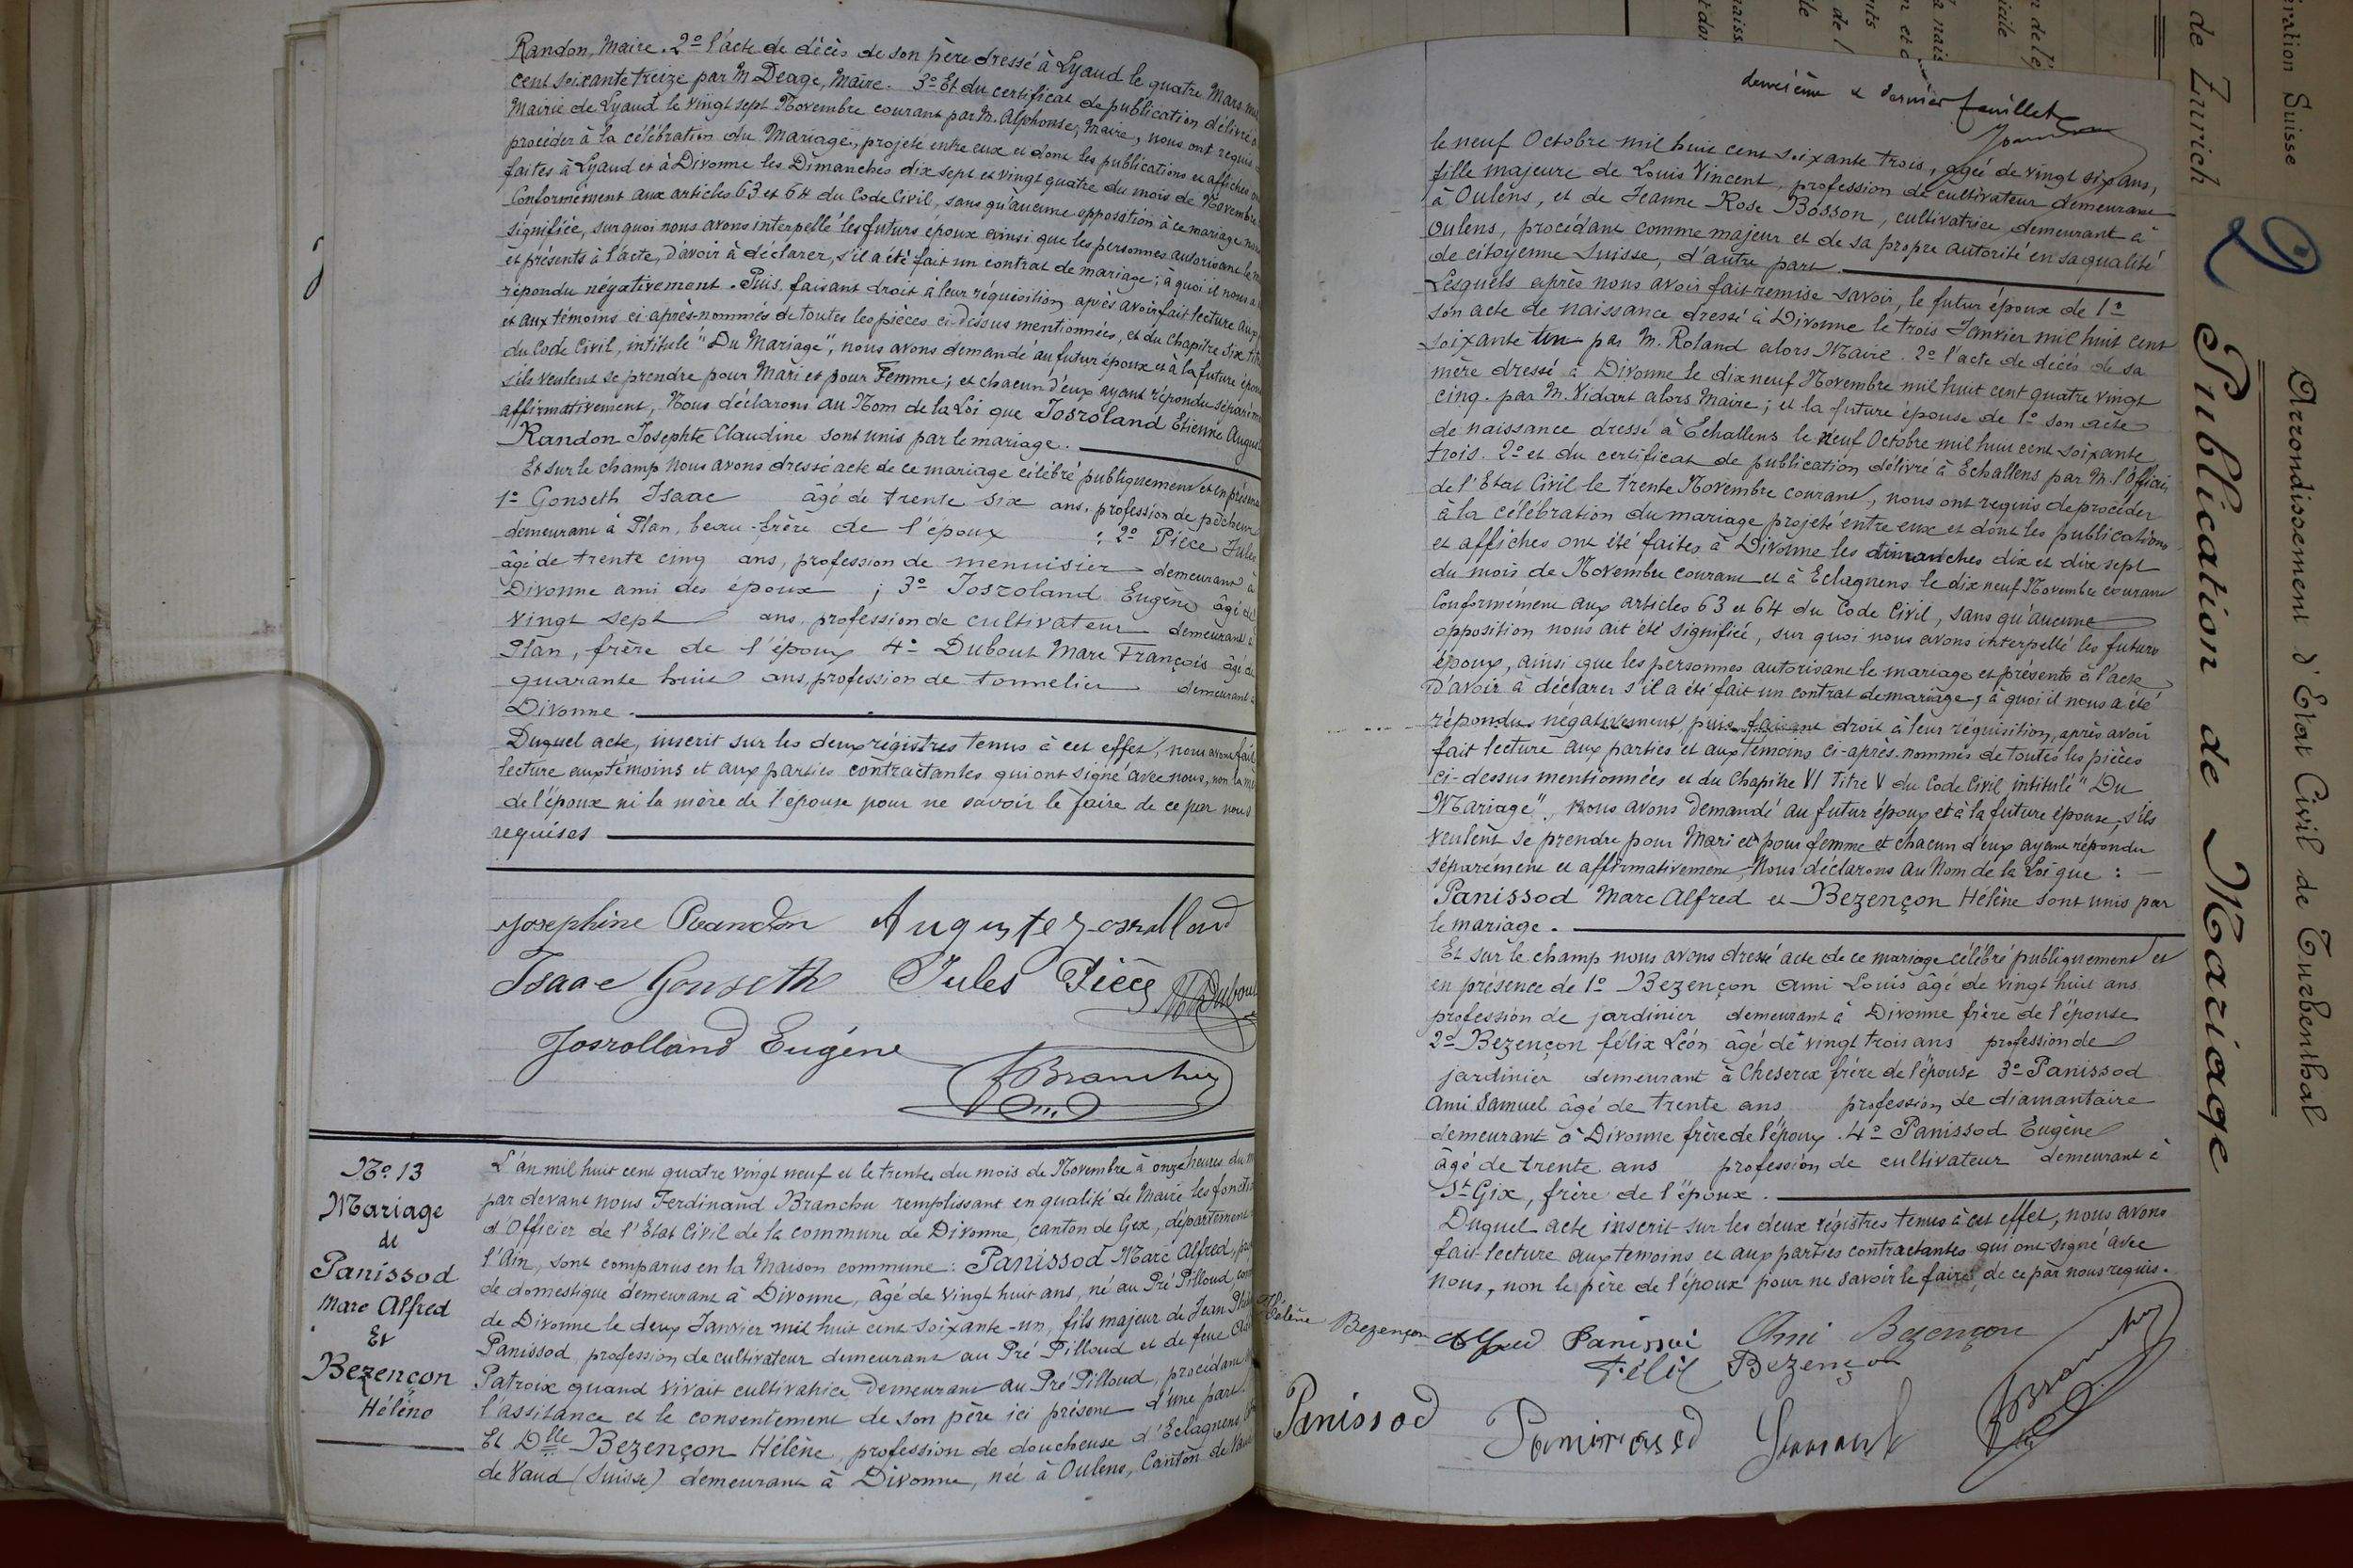 Randon, Maire. 2º l'acte de décès de son père dressé à Lyaud le quatre Mars mil
cent soixante treize par M Deage, Maire. 3º Et du certificat de publication délivré
Mairie de Lyaud le vingt sept Novembre courant par M. Alphonse, Maire, nous ont requis
procéder à la célébration du Mariage, projeté entre eux et dont les publications et affiches
faites à Lyaud et à Divonne les Dimanches dix sept et vingt quatre du mois de Novembre
Conformément aux articles 63 et 64 du Code Civil, sans qu'aucune opposition à ce mariage
signifiée, sur quoi nous avons interpellé les futurs époux ainsi que les personnes autorisant le
et présents à l'acte, d'avoir à déclarer, s'il a été fait un contrat de mariage ; à quoi il nous a
répondu négativement. Puis, faisant droit à leur réquisition après avoir fait lecture aux
et aux témoins ci-après-nommés de toutes les pièces ci-dessus mentionnées, et du Chapitre Six
du Code Civil, intitulé "Du Mariage", nous avons demandé au futur époux et à la future
s'ils veulent se prendre pour Mari et pour Femme ; et chacun d'eux ayant répondu
affirmativement, Nous déclarons au Nom de la Loi que Josroland Etienne
Randon Josephte Claudine sont unis par le mariage.
Et sur le champ Nous avons dressé acte de ce mariage célébré publiquement et en
1º Gonseth Isaac âgé de trente six ans, profession de pêcheur
demeurant à Plan, beau-frère de l'époux ; 2º Pièce Jules
âgé de trente cinq ans, profession de menuisier demeurant à
Divonne ami des époux ; 3º Josroland Eugène âgé de
vingt sept ans, profession de cultivateur demeurant à
Plan, frère de l'époux 4º Dubout Marc François âgé de
quarante huit ans, profession de tonnelier demeurant à
Divonne.
Duquel acte, inscrit sur les deux régistres tenus à cet effet, nous avons fait
lecture aux témoins et aux parties contractantes qui ont signé avec nous, non la
de l'époux ni la mère de l'épouse pour ne savoir le faire de ce par nous
requises
Josephine Randon Auguste Josrolland
Isaac Gonseth Jules Pièce Dubout
Josrolland Eugène
Branchu
Nº 13
Mariage
de
Panissod
Marc Alfred
Et
Bezençon
Hélène
L'an mil huit cent quatre vingt neuf et le trente du mois de Novembre à onze heures du
par devant nous Ferdinand Branchu remplissant en qualité de Maire les
d'Officier de l'Etat Civil de la commune de Divonne, canton de Gex, département
l'Ain, sont comparus en la Maison commune : Panissod Marc Alfred,
de domestique demeurant à Divonne, âgé de vingt huit ans, né au Pré Pilloud,
de Divonne le deux Janvier mil huit cent soixante-un, fils majeur de Jean
Panissod, profession de cultivateur demeurant au Pré Pilloud et de feue
Patroix quand vivait cultivatrice demeurant au Pré Pilloud, procédant
l'assitance et le consentement de son père ici présent d'une part.
Et Dlle Bezençon Hélène, profession de doucheuse d'Eclagnens,
de Vaud (Suisse) demeurant à Divonne, née à Oulens, Canton de Vaud
deuxième & dernier feuillet
le neuf Octobre mil huit cent soixante trois, agée de vingt six ans,
fille majeure de Louis Vincent, profession de cultivateur demeurant
à Oulens, et de Jeanne Rose Bosson, cultivatrice, demeurant à
Oulens, procédant comme majeur et de sa propre autorité en sa qualité
de citoyenne Suisse, d'autre part.
Lesquels après nous avoir fait remise savoir, le futur époux de 1º
son acte de naissance dressé à Divonne le trois Janvier mil huit cent
soixante un par M. Roland alors Maire. 2º l'acte de décès de sa
mère dressé à Divonne le dix neuf Novembre mil huit cent quatre vingt
cinq. par M. Vidart alors Maire ; et la future épouse de 1º son acte
de naissance dressé à Echallens le neuf Octobre mil huit cent soixante
trois. 2º et du certificat de publication délivré à Echallens par M. l'Officier
de l'Etat Civil le trente Novembre courant, nous ont requis de procéder
à la célébration du mariage projeté entre eux et dont les publications
et affiches ont été faites à Divonne les dimanches dix et dix sept
du mois de Novembre courant et à Eclagnens le dix neuf Novembre courant
Conformément aux articles 63 et 64 du Code Civil, sans qu'aucune
opposition nous ait été signifiée, sur quoi nous avons interpellé les futurs
époux, ainsi que les personnes autorisant le mariage et présents à l'acte
d'avoir à déclarer s'il a été fait un contrat de mariage ; à quoi il nous a été
répondu négativement, puis, faisant droit à leur réquisition, après avoir
fait lecture aux parties et aux témoins ci-après-nommés de toutes les pièces
ci-dessus mentionnées et du Chapitre VI Titre V du Code Civil intitulé "Du
Mariage", nous avons demandé au futur époux et à la future épouse, s'ils
veulent se prendre pour Mari et pour femme et chacun d'eux ayant répondu
séparément et affirmativement, Nous déclarons au Nom de la Loi que :
Panissod Marc Alfred et Bezençon Hélène sont unis par
le mariage.
Et sur le champ nous avons dressé acte de ce mariage célébré publiquement et
en présence de 1º Bezençon Ami Louis âgé de vingt huit ans
profession de jardinier demeurant à Divonne frère de l'épouse
2º Bezençon félix Léon âgé de vingt trois ans profession de
jardinier demeurant à Cheserex frère de l'épouse 3º Panissod
Ami Samuel âgé de trente ans profession de diamantaire
demeurant à Divonne frère de l'époux. 4º Panissod Eugène
âgé de trente ans profession de cultivateur demeurant à
St Gix, frère de l'époux.
Duquel acte inscrit sur les deux régistres tenus à cet effet, nous avons
fait lecture aux témoins et aux parties contractantes qui ont signé avec
nous, non le père de l'époux pour ne savoir le faire, de ce par nous requis.
Hélène Bezençon Alfred Panissod Ami Bezençon
Félix Bezençon
Panissod Panissod Branchu
ération Suisse
Arrondissement d'Etat Civil de Turbenthal
de Zurich
2 Publication de Mariage